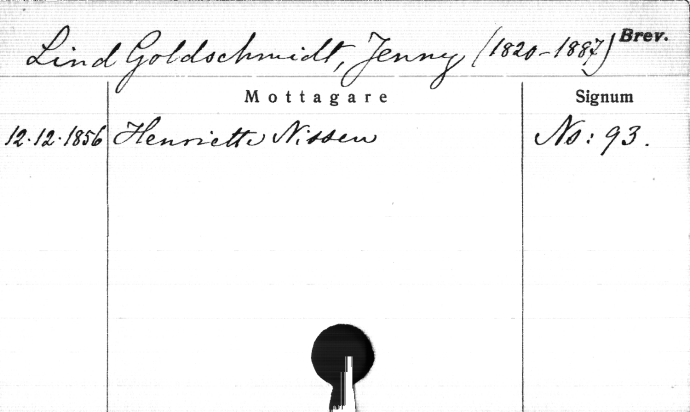 Lind Goldschmidt, Jenny (1820-1887) Brev.
Mottagare Signum
12.12.1856 Henriette Nissen No: 93.